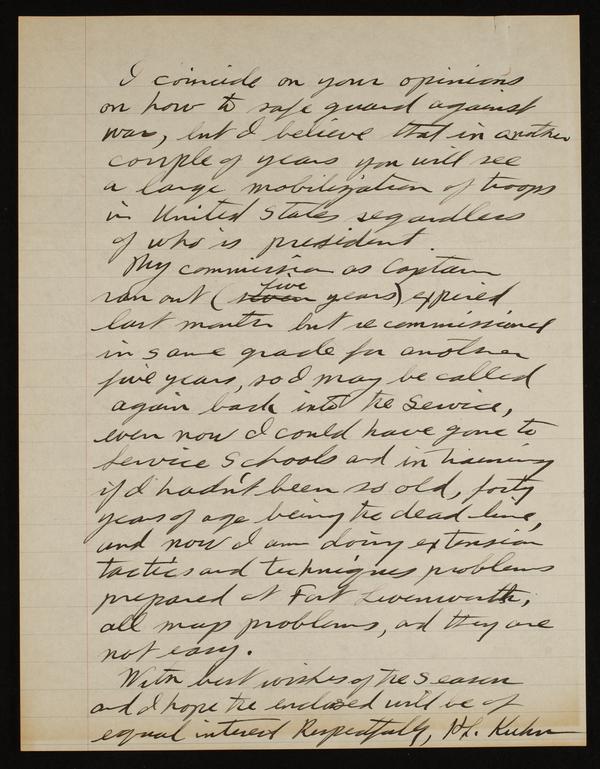 I coincide on your opinions
on how to safe guard against
war, but I believe that in another
couple of years you will see
a large mobilization of troops
in United States regardless
of who is president.
My commission as Captain
five
ran out (seven years) expired
last month but recommissioned
in same grade for another
five years, so I may be called
again back into the Service,
even now I could have gone to
Service Schools and in training
if I hadn't been so old, forty
years of age being the dead line,
and now I am doing extension
tactics and techniques problems
prepared at Fort Levenworth,
all map problems, and they are
not easy.
With best wishes of the season
and I hope the enclosed will be of
equal interest Respectfully, H.L. Kuhn